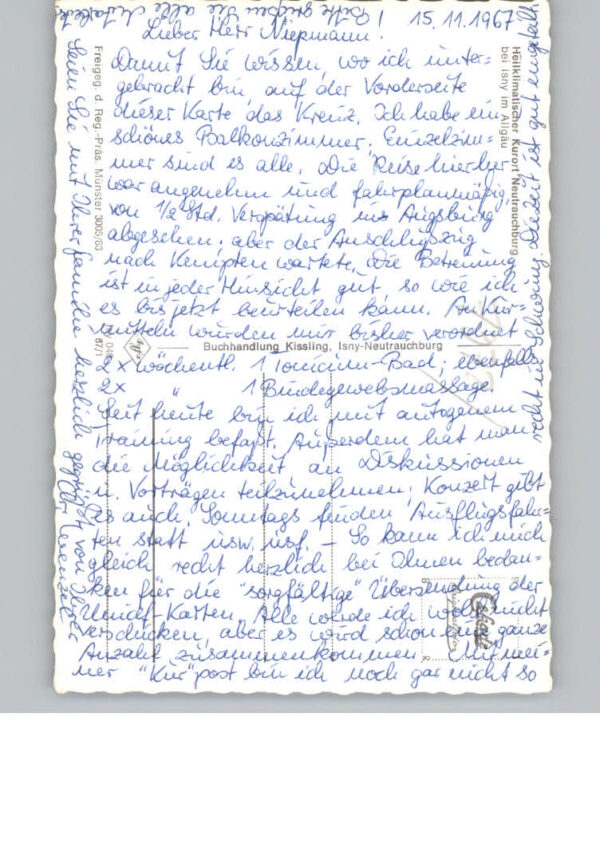 15.11.1967
Lieber Herr Niepmann!
Damit Sie wissen, wo ich unter-
gebracht bin, auf der Vorderseite
dieser Karte das Kreuz. Ich habe ein
schönes Balkonzimmer. Einzelzim-
mer sind es alle. Die Reise hierher
war angenehm und fahrplanmäßig,
von 1/2 Std. Verspätung in Augsburg
abgesehen, aber der Anschlußzug
nach Kempten wartete. Die Betreuung
ist in jeder Hinsicht gut, so wie ich
es bis jetzt beurteilen kann. An Kur-
mitteln wurden mir bisher verordnet
2x wöchentl. 1 Bad; ebenfalls
2x " 1 Bindegewebsmassage.
Seit heute bin ich mit autogenem
Training befaßt. Außerdem hat man
die Möglichkeit an Diskussionen
u. Vorträgen teilzunehmen. Konzert gibt
es auch. Sonntags finden Ausflugsfahr-
ten statt usw. usf. - So kann ich mich
gleich recht herzlich bei Ihnen bedan-
ken für die "sorgfältige" Übersendung der
-Karten. Alle werde ich wohl nicht
verschicken, aber es wird schon eine ganze
Anzahl zusammenkommen. Mit mei-
ner "Kur" post bin ich noch gar nicht so
recht in Schwung. Die Zeit ist gut eingeteilt
Bitte grüßen Sie alle
Seien Sie mit Ihrer Familie herzlich gegrüßt von Ihrer
Heilklimatischer Kurort Neutrauchburg
bei Isny im Allgäu
Freigeg. d. Reg.-Präs. Münster 3005/63
Buchhandlung Kissling, Isny-Neutrauchburg
67/1